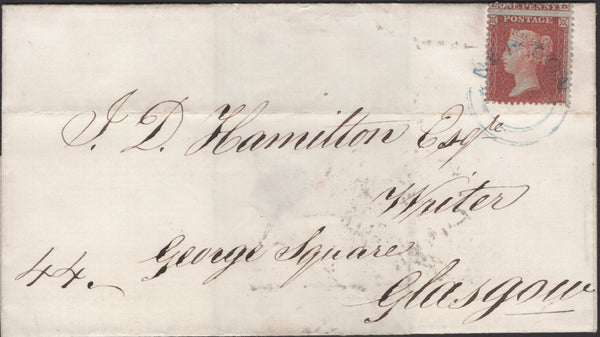 ONE PENNY
POSTAGE
J. D. Hamilton Esqre
Writer
44 George Square
Glasgow